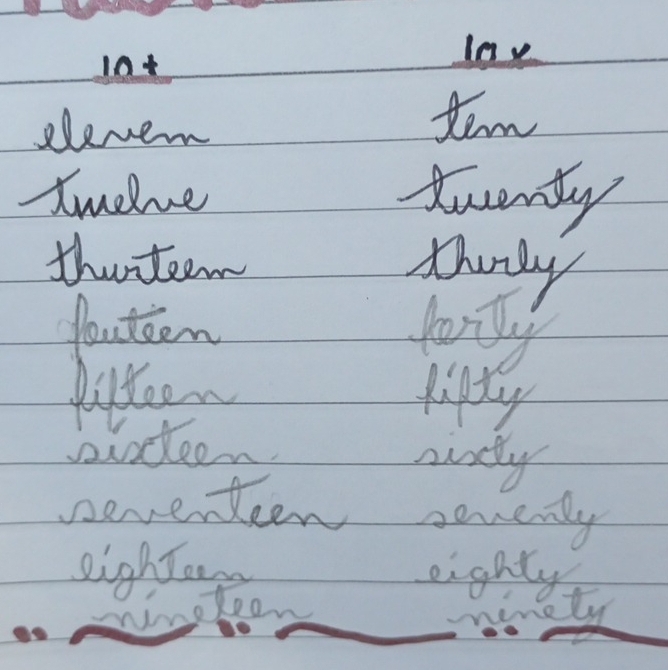 10+ 10x
elevem tem
twelve twenty
thurteem thirty
fouteen forty
fifteen fifty
sixteen sixty
seventeen seventy
eighteen eighty
nineteen ninety